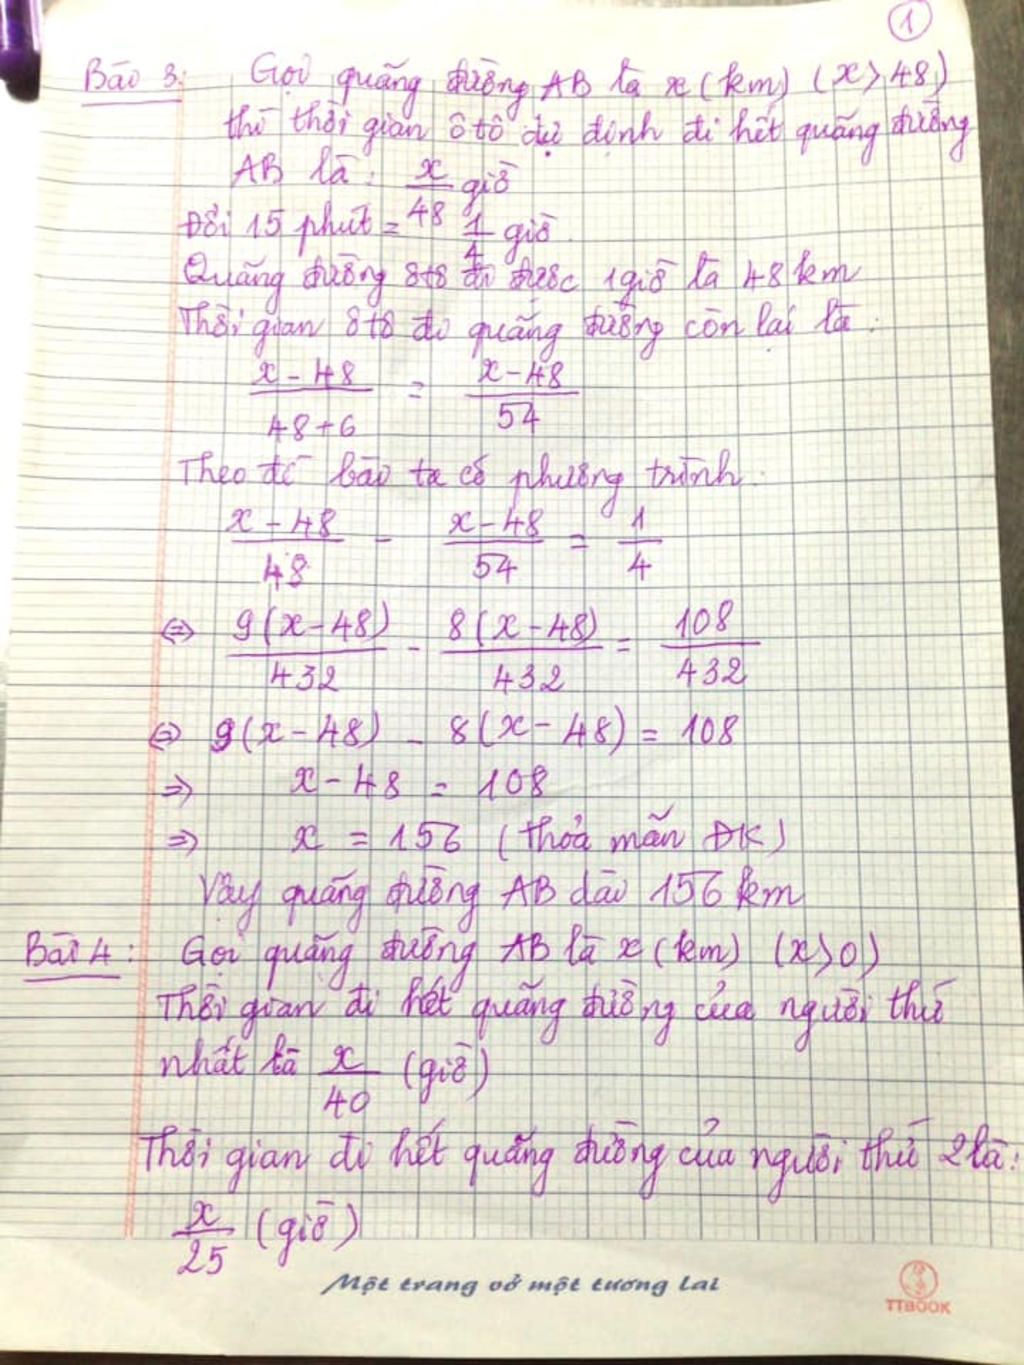 1
Bài 3: Gọi quãng đường AB là x (km) (x > 48)
thì thời gian ô tô dự định đi hết quãng đường
AB là: x/48 giờ
Đổi 15 phút = 1/4 giờ.
Quãng đường ôtô đi được 1 giờ là 48 km
Thời gian ôtô đi quãng đường còn lại là:
(x - 48)/(48 + 6) = (x - 48)/54
Theo đề bài ta có phương trình.
(x - 48)/48 - (x - 48)/54 = 1/4
⇔ 9(x - 48)/432 - 8(x - 48)/432 = 108/432
⇔ 9(x - 48) - 8(x - 48) = 108
⇒ x - 48 = 108
⇒ x = 156 (thỏa mãn ĐK)
Vậy quãng đường AB dài 156 km
Bài 4: Gọi quãng đường AB là x (km) (x > 0)
Thời gian đi hết quãng đường của người thứ
nhất là x/40 (giờ)
Thời gian đi hết quãng đường của người thứ 2 là:
x/25 (giờ)
Một trang vở một tương lai
TTBOOK